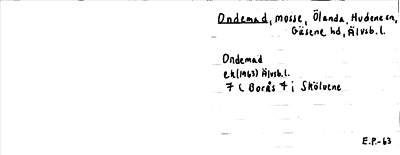 Ondemad, mosse, Ölanda, Hudene sn,
Gäsene hd, Älvsb.l.
Ondemad
ek(1963) Älvsb.l.
7 ( Borås 7 i Skölvene
E.P.-63